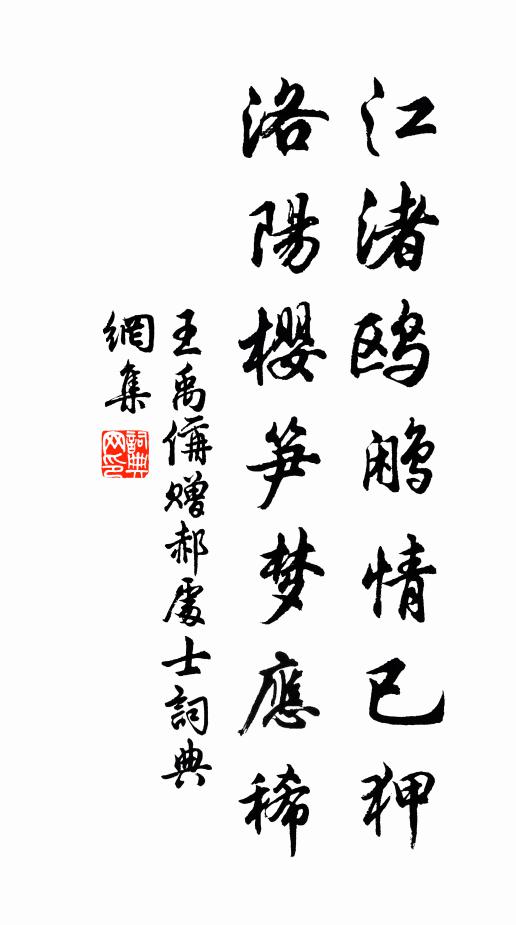 江渚鸥鹇情已狎
洛陽櫻笋梦應稀
王禹偁贈郝處士詞典
網集
詞典
网印